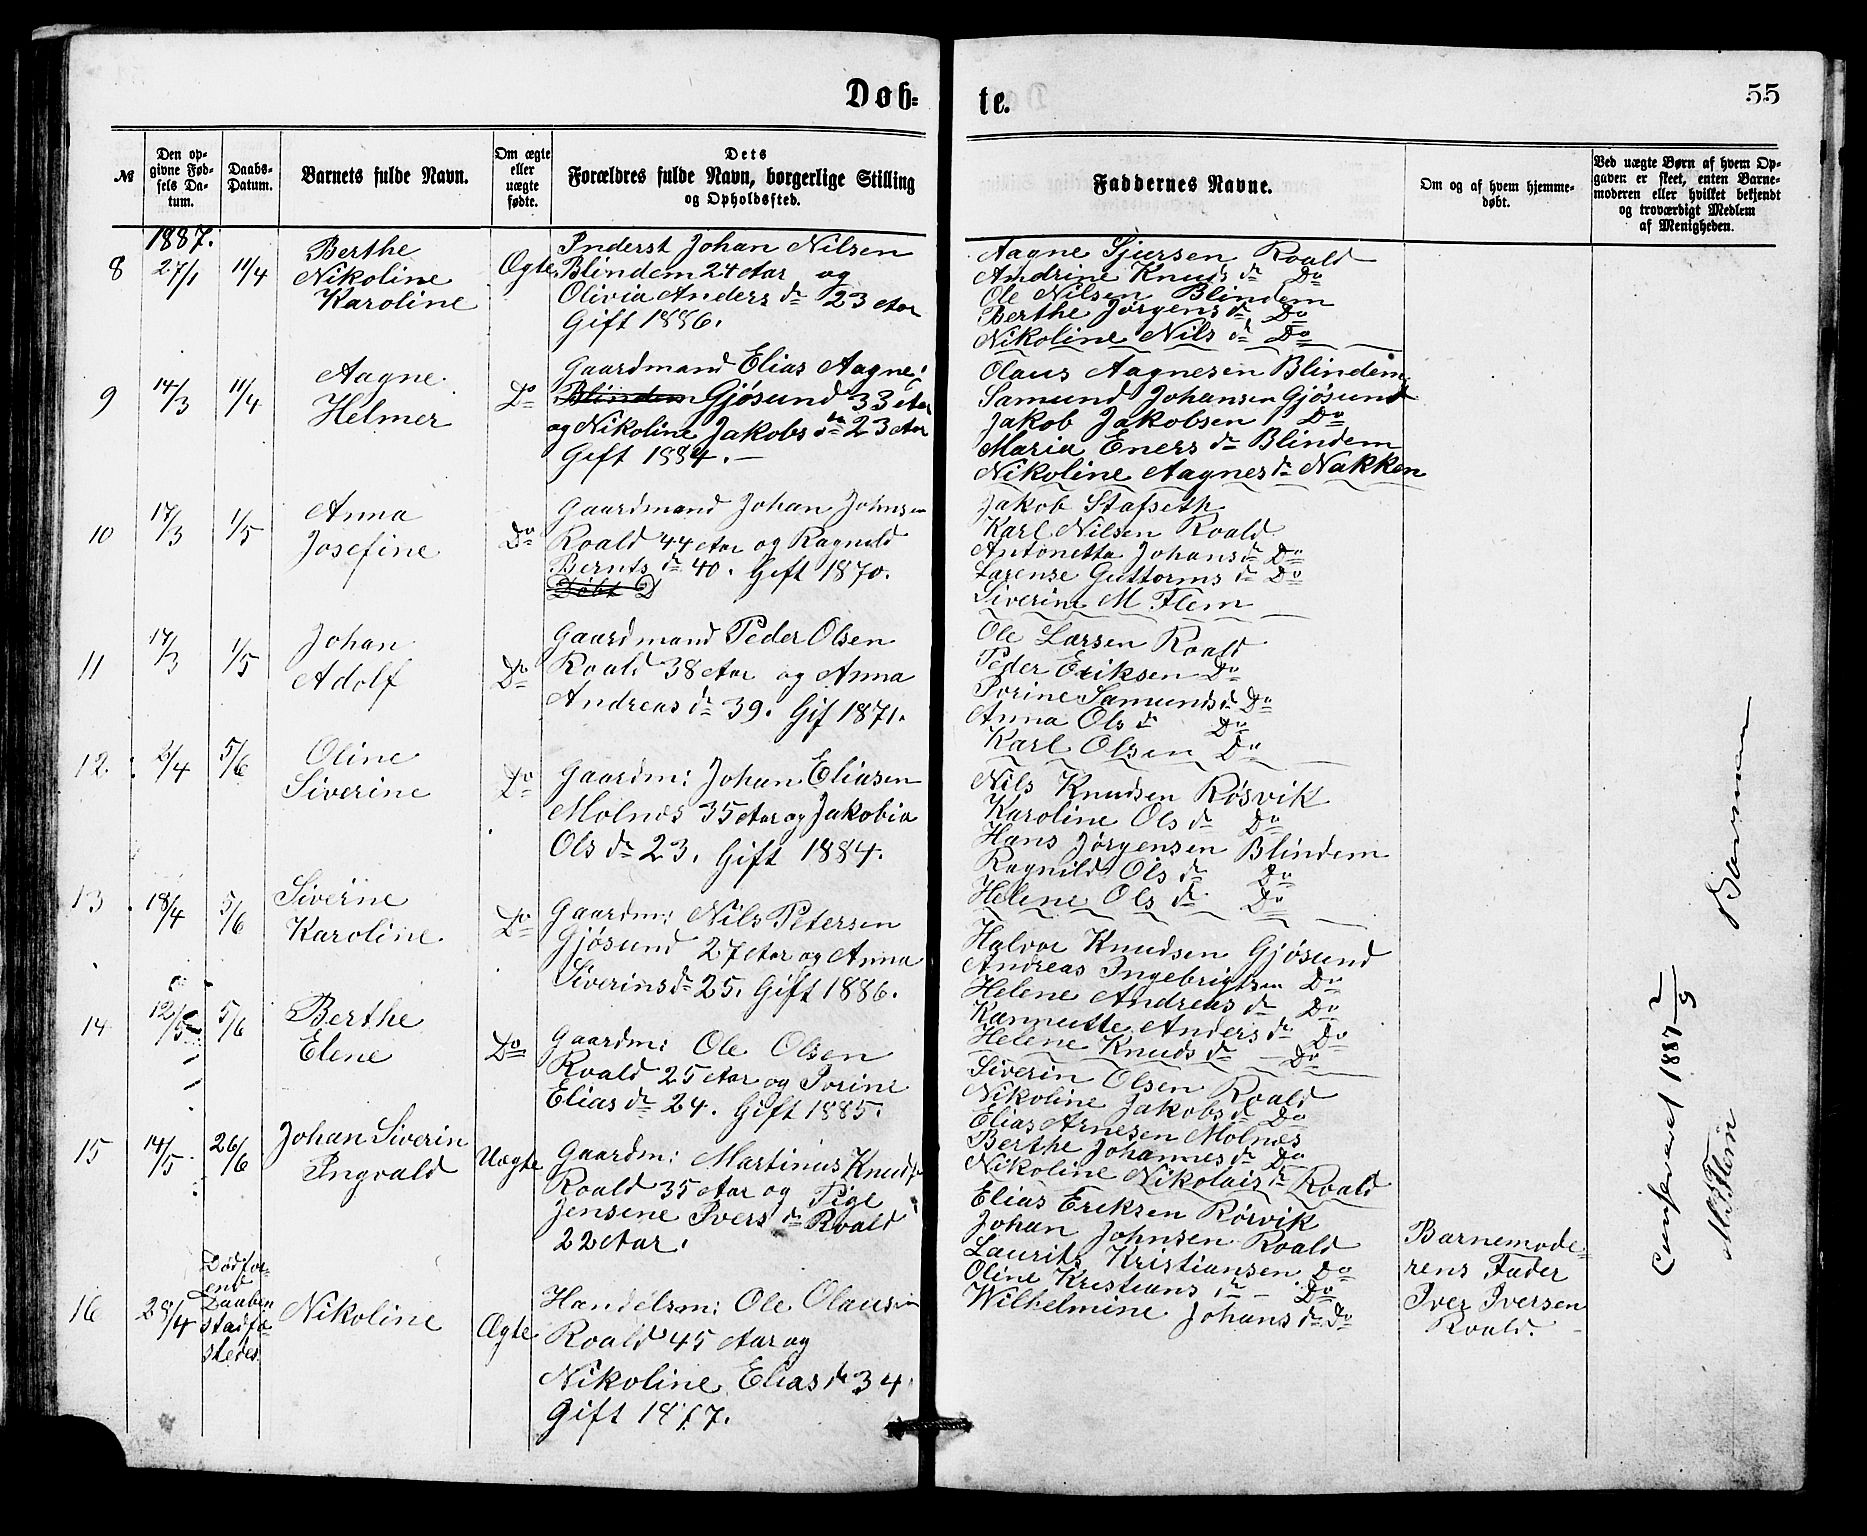 Døb-
te.
55
№
Den op-
givne Fød-
sels Da-
tum.
Daabs-
Datum.
Barnets fulde Navn.
Om ægte
eller
uægte
fødte.
Dets
Forældres fulde Navn, borgerlige Stilling
og Opholdssted.
Faddernes Navne.
Om og af hvem hjemme-
døbt.
Ved uægte Børn af hvem Op-
gaven er skeet, enten Barne-
moderen eller hvilket bekjendt
og troværdigt Medlem
af Menigheden.
1887.
8
27/1
11/4
Berthe
Nikoline
Karoline
Ægte
Inderst Johan Nilsen
Blindem 24 Aar og
Olivia Anders dr 23 Aar
Gift 1886.
Aagne Sjursen Roald
Andrine Knuds dr Do
Ole Nilsen Blindem
Berthe Jørgens dr Do
Nikoline Nils dr Do
9
14/3
11/4
Aagne
Helmer
Do
Gaardmand Elias Aagne:
Blindem Gjøsund 33 Aar
og Nikoline Jakobs dr 23 Aar
Gift 1884.
Olaus Aagnesen Blindem
Samund Johansen Gjøsund
Jakob Jakobsen Do
Maria Eners dr Blindem
Nikoline Aagnes dr Nakken
10
17/3
1/5
Anna
Josefine
Do
Gaardmand Johan Johnsen
Roald 44 Aar og Ragnild
Bernts dr 40. Gift 1870.
Døbt D
Jakob Stafseth
Karl Nilsen Roald
Antonetta Johans dr Do
Larense Guttorms dr Do
Siverine M Flem
11
17/3
1/5
Johan
Adolf
Do
Gaardmand Peder Olsen
Roald 38 Aar og Anna
Andreas dr 39. Gif 1871.
Ole Larsen Roald
Peder Eriksen Do
Ivrine Samunds dr Do
Anna Ols dr Do
Karl Olsen Do
12.
2/4
5/6
Oline
Siverine
Do
Gaardm: Johan Eliasen
Molnes 35 Aar og Jakobia
Ols dr 23. Gift 1884.
Nils Knudsen Røsvik
Karoline Ols dr Do
Hans Jørgensen Blindem
Ragnild Ols dr Do
Helene Ols dr Do
13
18/4
5/6
Siverine
Karoline
Do
Gaardm: Nils Petersen
Gjøsund 27 Aar og Anna
Siverins dr 25. Gift 1886.
Halvor Knudsen Gjøsund
Andreas Ingebrigtsen Do
Helene Andreas dr Do
Kannutte Anders dr Do
Helene Knuds dr Do
14
12/5
5/6
Berthe
Elene
Do
Gaardm: Ole Olsen
Roald 25 Aar og Ivrine
Elias dr 24. Gift 1885.
Siverin Olsen Roald
Nikoline Jakobs dr Do
Elias Arnesen Molnes
Berthe Johannes dr Do
Nikoline Nikolais dr Roald
15
14/5
26/6
Johan Siverin
Ingvald
Uægte
Gaardm: Martinus Knuds
Roald 35 Aar og Pige
Jensene Ivers dr Roald
22 Aar.
Elias Eriksen Rørvik
Johan Johnsen Roald
Laurits Kristiansen Do
Oline Kristians dr Do
Wilhelmine Johans dr Do
Barnemode-
rens Fader
Iver Iversen
Roald.
16
28/4
Død før
end
Daaben
stadfæ
stedes.
Nikoline
Ægte
Handelsm: Ole Olausen
Roald 45 Aar og
Nikoline Elias dr 34
Gift 1877.
Confereret 1887 2/9
M. Flem